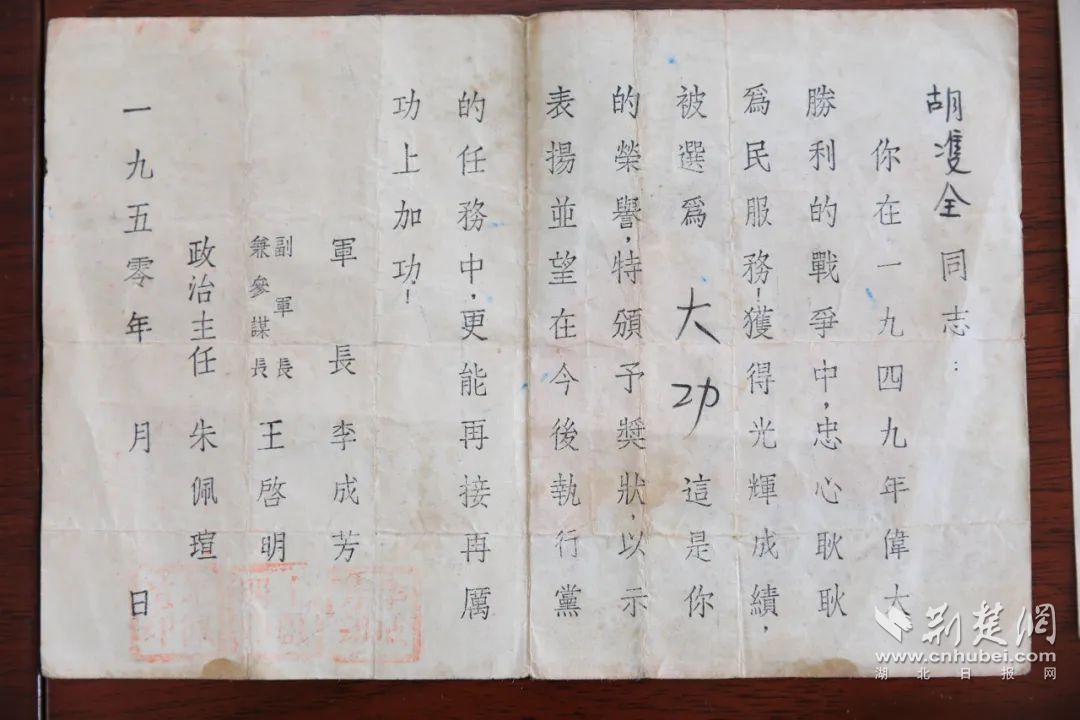 胡双全同志：
你在一九四九年偉大
勝利的戰爭中，忠心耿耿
爲民服務！獲得光輝成績，
被選爲 大功 這是你
的榮譽，特頒予奬狀，以示
表揚並望在今後執行黨
的任務中，更能再接再厲
功上加功！
軍長 李成芳
副軍長
兼參謀長 王啓明
政治主任 朱佩瑄
一九五零年 月 日
荆楚網
www.cnhubei.com
湖北日报网